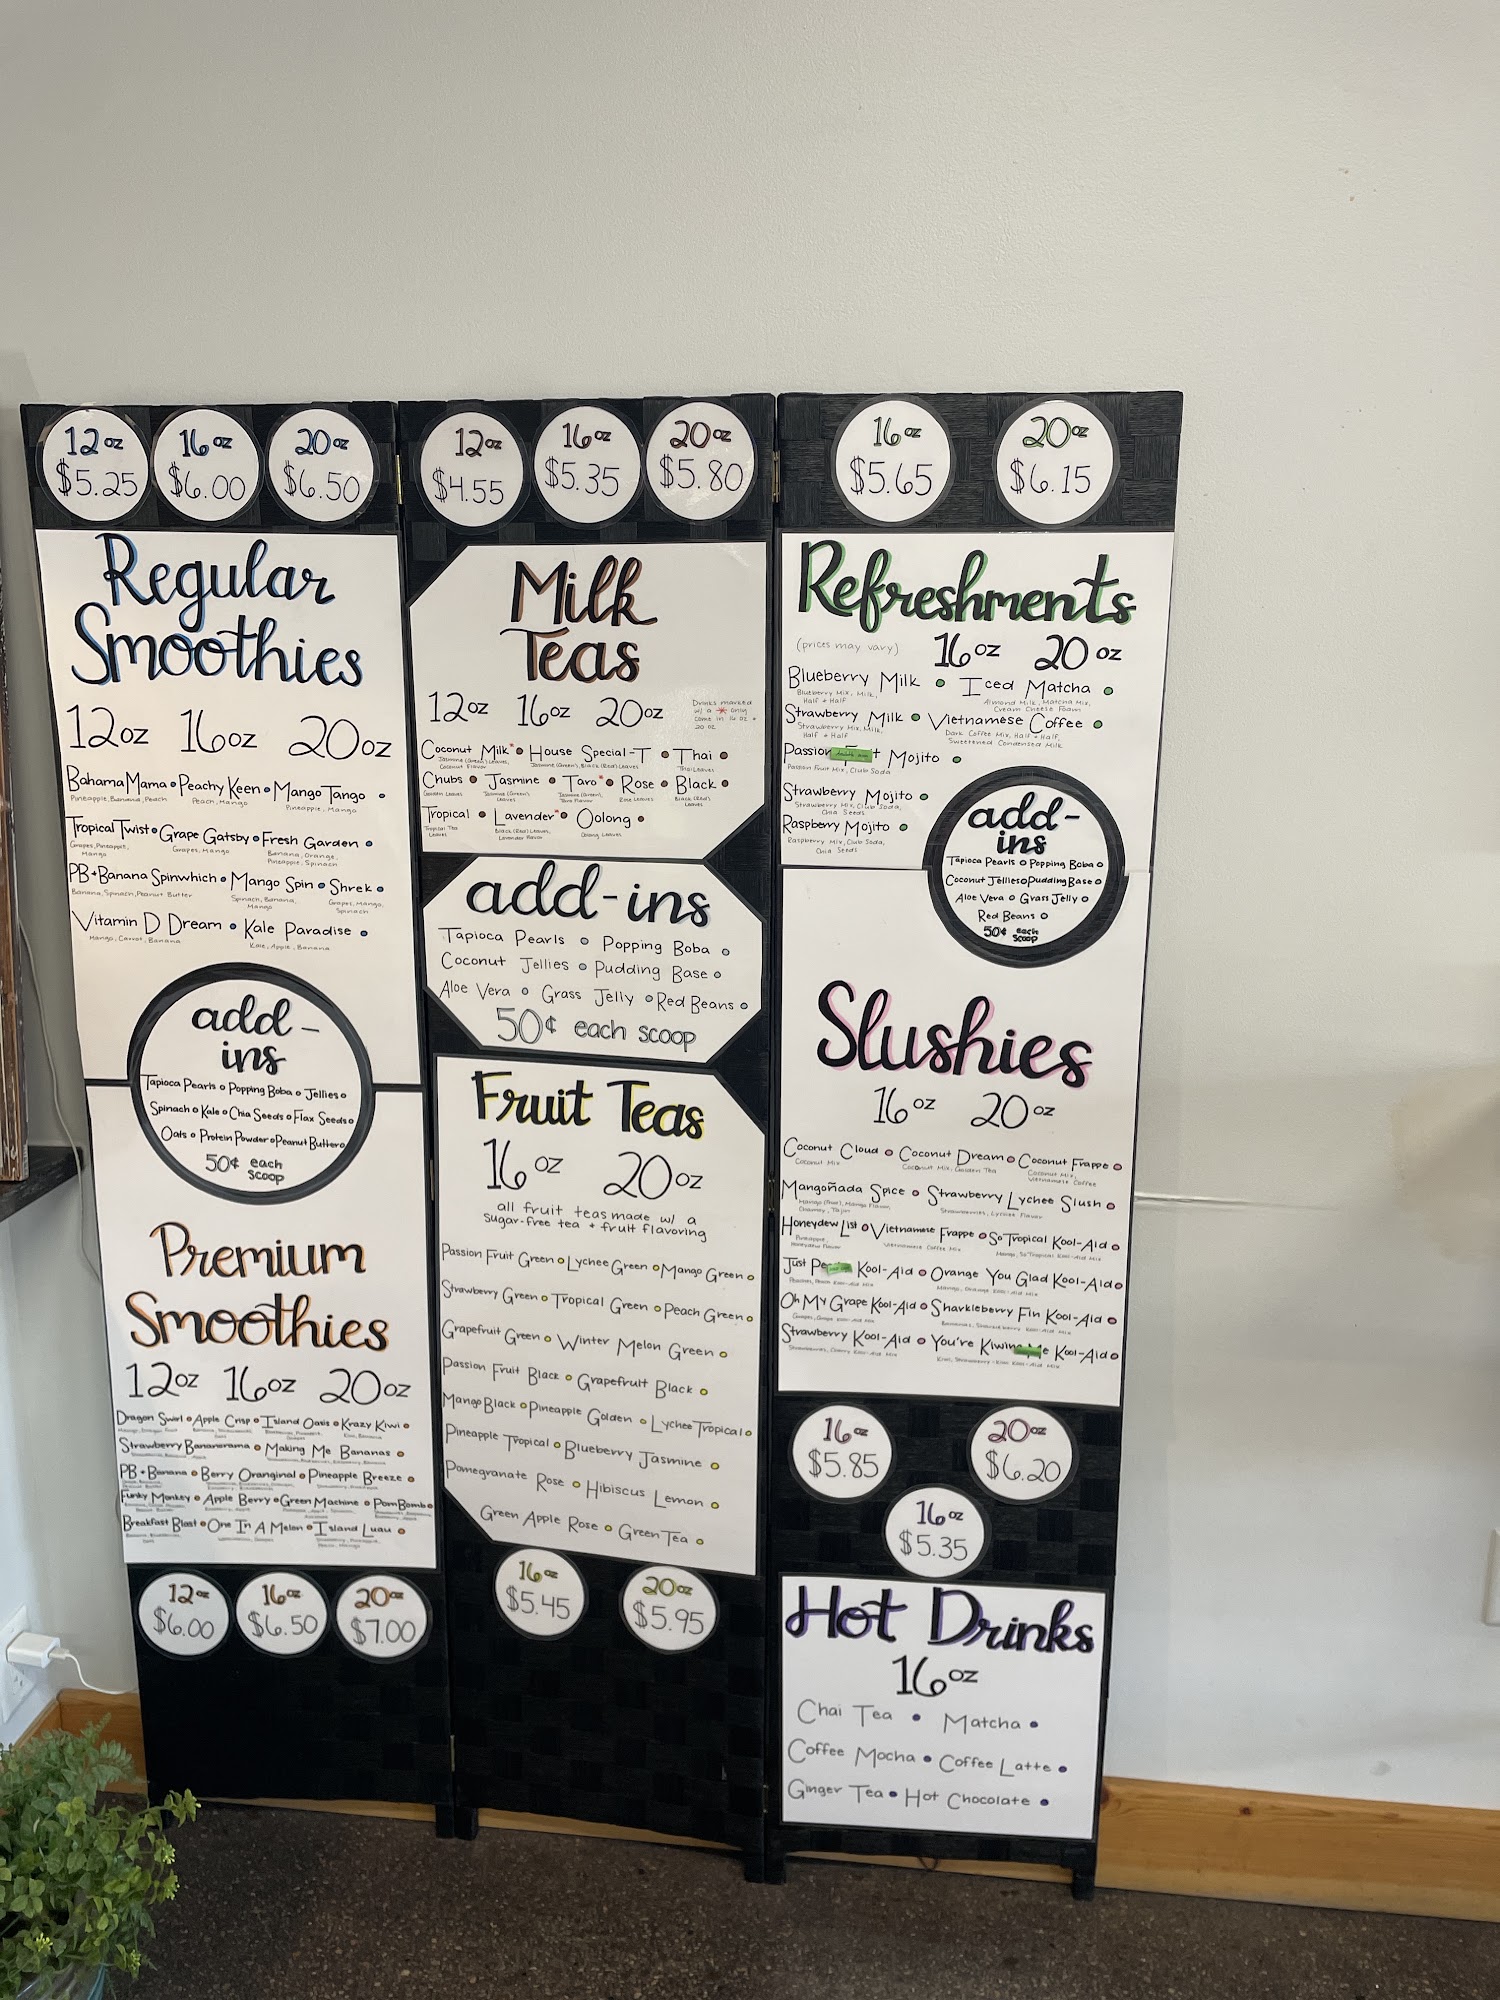 12oz $5.25
16oz $6.00
20oz $6.50
Regular
Smoothies
12oz 16oz 20oz
Bahama Mama • Peachy Keen • Mango Tango •
Pineapple, Banana, Peach Peach, Mango Pineapple, Mango
Tropical Twist • Grape Gatsby • Fresh Garden •
Grapes, Pineapple, Mango Grapes, Mango Banana, Orange, Pineapple, Spinach
PB+Banana Spinwhich • Mango Spin • Shrek •
Banana, Spinach, Peanut Butter Spinach, Banana, Mango Grapes, Mango, Spinach
Vitamin D Dream • Kale Paradise •
Mango, Carrot, Banana Kale, Apple, Banana
add-
ins
Tapioca Pearls • Popping Boba • Jellies •
Spinach • Kale • Chia Seeds • Flax Seeds •
Oats • Protein Powder • Peanut Butter •
50¢ each
scoop
Premium
Smoothies
12oz 16oz 20oz
Dragon Swirl • Apple Crisp • Island Oasis • Krazy Kiwi •
Strawberry Bananarama • Making Me Bananas •
PB+Banana • Berry Oranginal • Pineapple Breeze •
Funky Monkey • Apple Berry • Green Machine • Pom Bomb •
Breakfast Blast • One In A Melon • Island Luau •
12oz $6.00
16oz $6.50
20oz $7.00
12oz $4.55
16oz $5.35
20oz $5.80
Milk
Teas
12oz 16oz 20oz
Drinks marked
w/ a * only
come in 16 oz +
20 oz
Coconut Milk* • House Special-T • Thai •
Jasmine (Green) Leaves, Coconut Flavor Jasmine (Green), Black (Red) Leaves Thai Leaves
Chubs • Jasmine • Taro* • Rose • Black •
Golden Leaves Jasmine (Green) Leaves Jasmine (Green), Taro Flavor Rose Leaves Black (Red) Leaves
Tropical • Lavender* • Oolong •
Tropical Tea Leaves Black (Red) Leaves, Lavender Flavor Oolong Leaves
add-ins
Tapioca Pearls • Popping Boba •
Coconut Jellies • Pudding Base •
Aloe Vera • Grass Jelly • Red Beans •
50¢ each scoop
Fruit Teas
16oz 20oz
all fruit teas made w/ a
sugar-free tea + fruit flavoring
Passion Fruit Green • Lychee Green • Mango Green •
Strawberry Green • Tropical Green • Peach Green •
Grapefruit Green • Winter Melon Green •
Passion Fruit Black • Grapefruit Black •
Mango Black • Pineapple Golden • Lychee Tropical •
Pineapple Tropical • Blueberry Jasmine •
Pomegranate Rose • Hibiscus Lemon •
Green Apple Rose • Green Tea •
16oz $5.45
20oz $5.95
16oz $5.65
20oz $6.15
Refreshments
(prices may vary) 16oz 20oz
Blueberry Milk • Iced Matcha •
Blueberry Mix, Milk, Half + Half Almond Milk, Matcha Mix, Cream Cheese Foam
Strawberry Milk • Vietnamese Coffee •
Strawberry Mix, Milk, Half + Half Dark Coffee Mix, Half + Half, Sweetened Condensed Milk
Passion Mojito •
Passion Fruit Mix, Club Soda
Strawberry Mojito •
Strawberry Mix, Club Soda, Chia Seeds
Raspberry Mojito •
Raspberry Mix, Club Soda, Chia Seeds
add-
ins
Tapioca Pearls • Popping Boba •
Coconut Jellies • Pudding Base •
Aloe Vera • Grass Jelly •
Red Beans •
50¢ each
scoop
Slushies
16oz 20oz
Coconut Cloud • Coconut Dream • Coconut Frappe •
Coconut Mix Coconut Mix, Golden Tea Coconut Mix, Vietnamese Coffee
Mangoñada Spice • Strawberry Lychee Slush •
Mango (fruit), Mango Flavor, Chamoy, Tajin Strawberries, Lychee Flavor
Honeydew List • Vietnamese Frappe • So Tropical Kool-Aid •
Pineapple, Honeydew Flavor Vietnamese Coffee Mix Mango, So Tropical Kool-Aid Mix
Just Kool-Aid • Orange You Glad Kool-Aid •
Peaches, Peach Kool-Aid Mix Mango, Orange Kool-Aid Mix
Oh My Grape Kool-Aid • Sharkleberry Fin Kool-Aid •
Grapes, Grape Kool-Aid Mix Bananas, Sharkleberry Kool-Aid Mix
Strawberry Kool-Aid • You're Kool-Aid •
Strawberries, Cherry Kool-Aid Mix Kiwi, Strawberry-Kiwi Kool-Aid Mix
16oz $5.85
20oz $6.20
16oz $5.35
Hot Drinks
16oz
Chai Tea • Matcha •
Coffee Mocha • Coffee Latte •
Ginger Tea • Hot Chocolate •